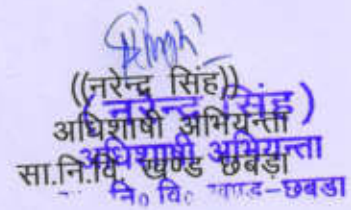 ((नरेन्द्र सिंह))
(नरेन्द्र सिंह)
अधिशाषी अभियन्ता
अधिशाषी अभियन्ता
सा.नि.वि. खण्ड छबड़ा
नि० वि० खण्ड-छबडा